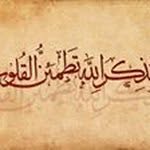 بذِكرِ اللهِ تَطمَئِنُّ القُلوب